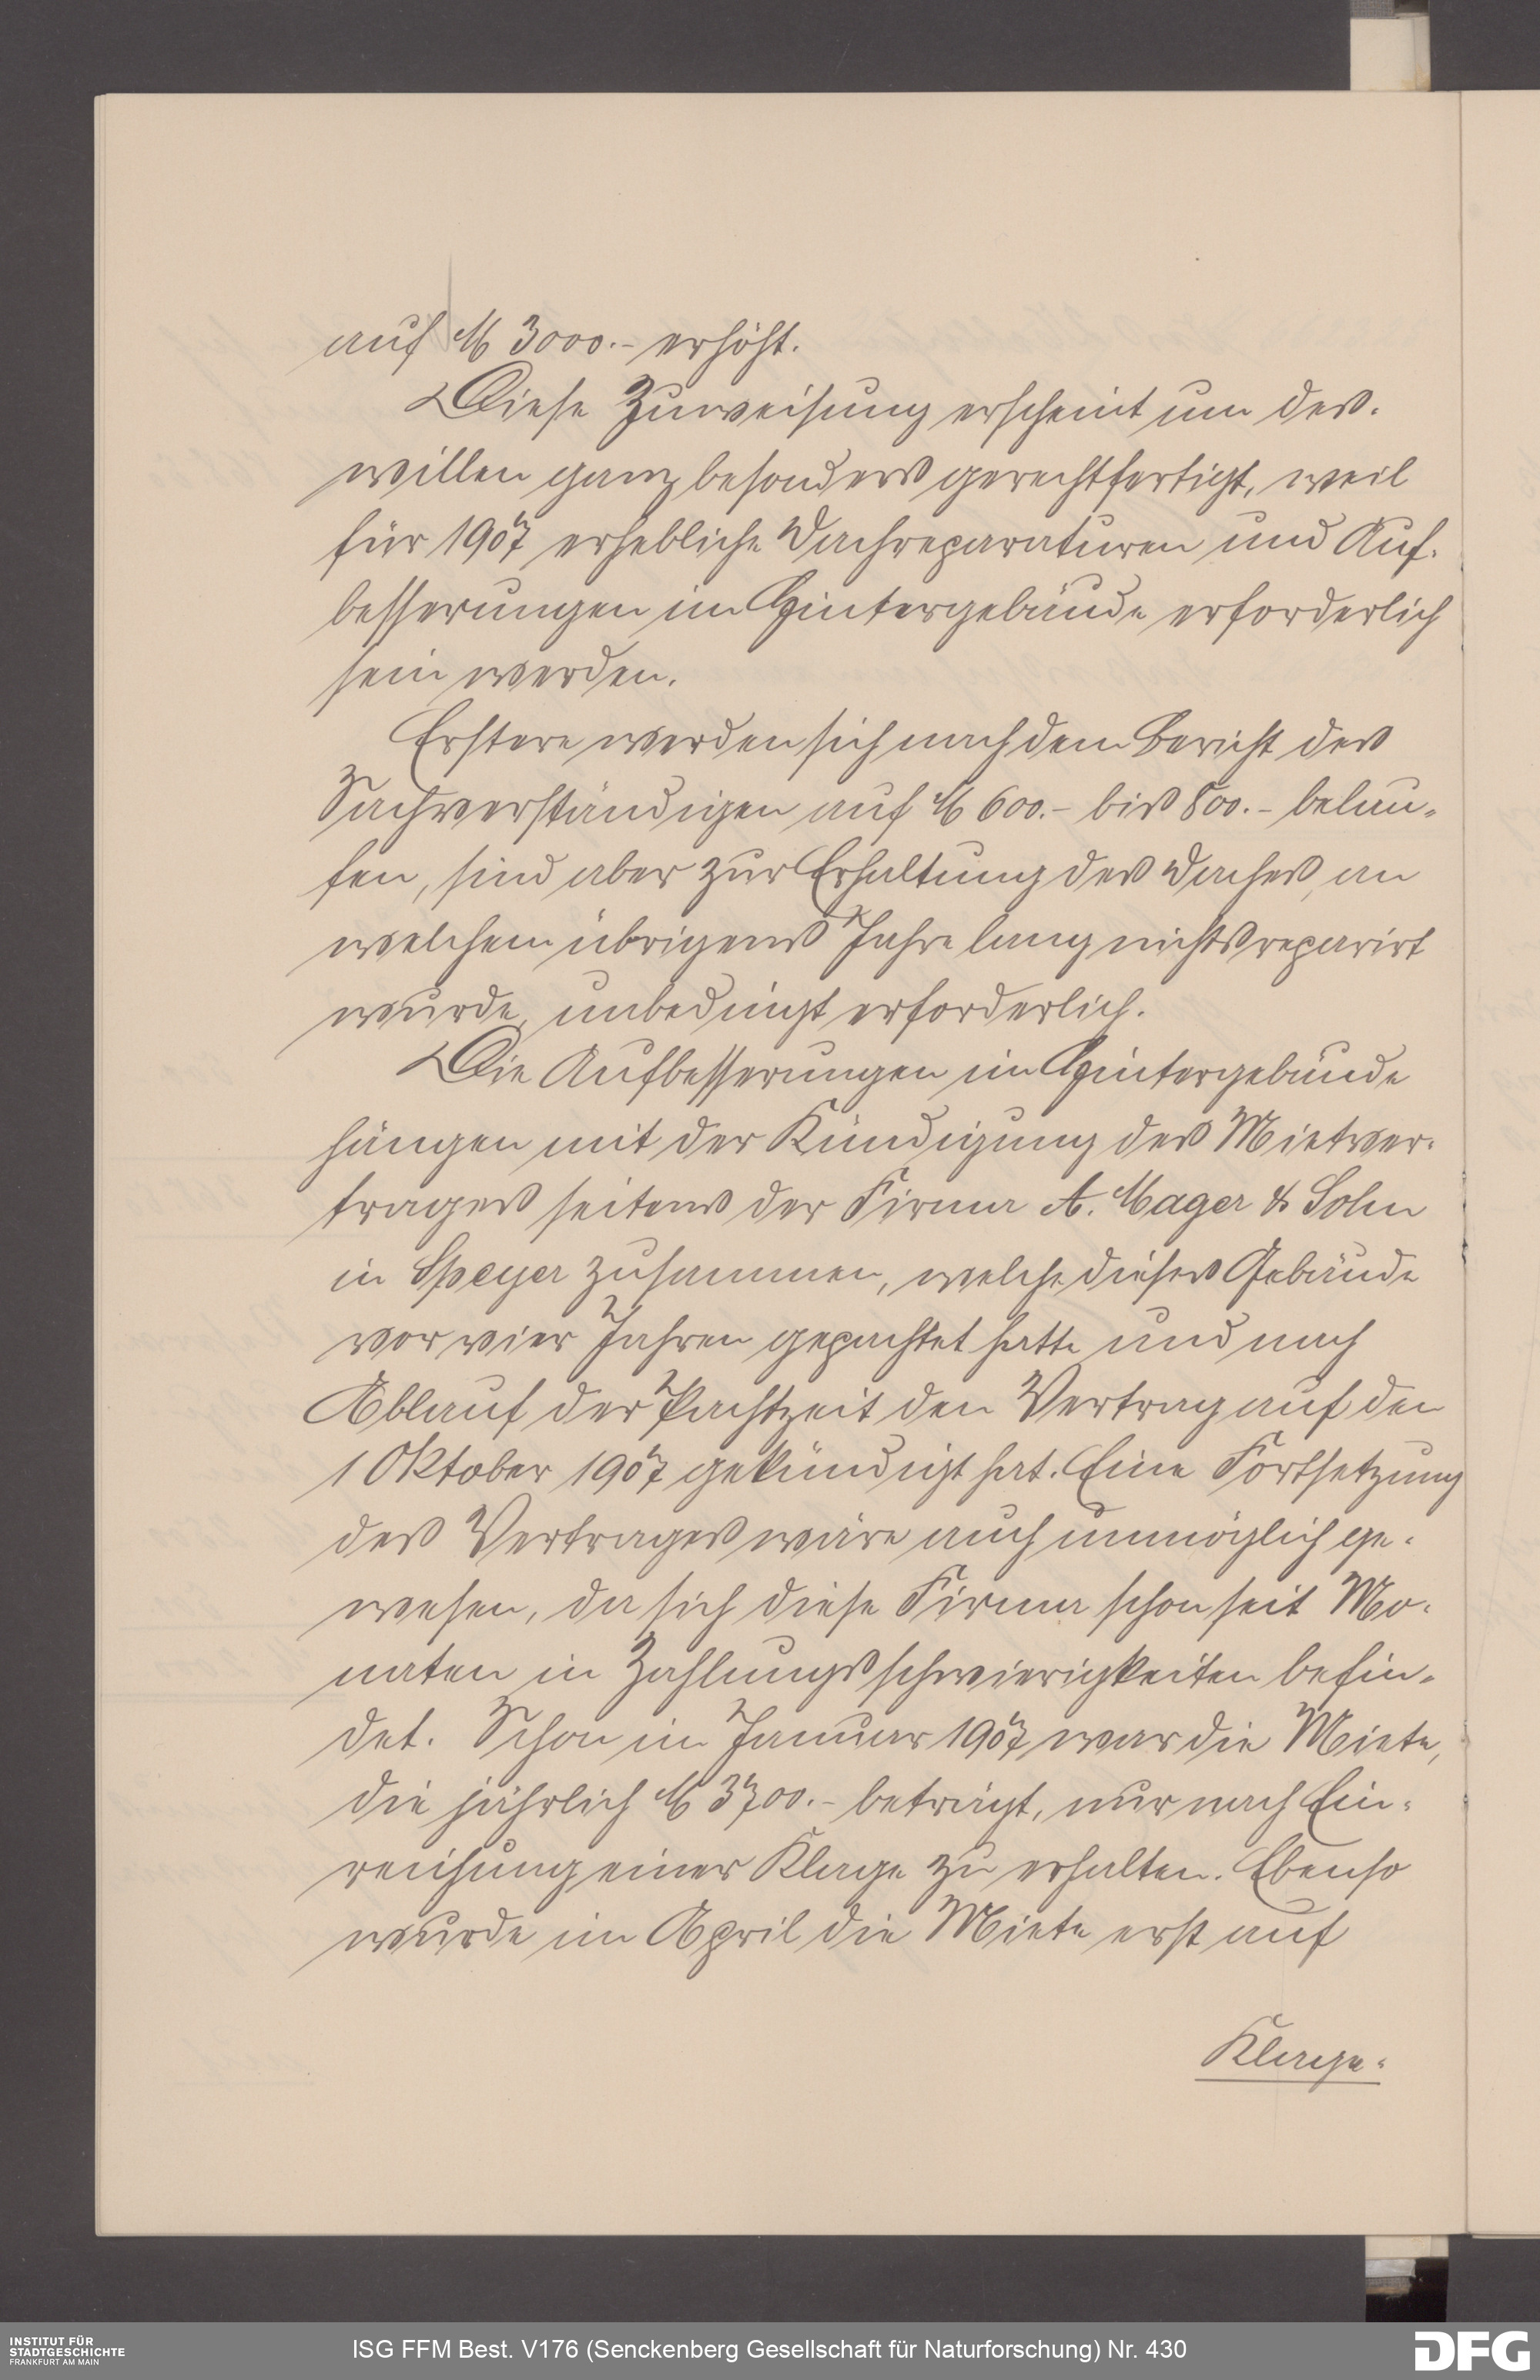 auf ℳ 3000.- erhöht.
Diese Zuweisung erscheint um des-
willen ganz besonders gerechtfertigt, weil
für 1907 erhebliche Dachreparaturen und Auf-
besserungen im Hintergebäude erforderlich
sein werden.
Erstere werden sich nach dem Bericht des
Sachverständigen auf ℳ 600.- bis 800.- belau-
fen, sind aber zur Erhaltung des Daches, an
welchem übrigens Jahre lang nichts reparirt
wurde, unbedingt erforderlich.
Die Aufbesserungen im Hintergebäude
hängen mit der Kündigung des Mietver-
trages seitens der Firma A. Mager & Sohn
in Speyer zusammen, welche dieses Gebäude
vor vier Jahren gepachtet hatte und nach
Ablauf der Pachtzeit den Vertrag auf den
1 Oktober 1907 gekündigt hat. Eine Fortsetzung
des Vertrages wäre auch unmöglich ge-
wesen, da sich diese Firma schon seit Mo-
naten in Zahlungsschwierigkeiten befin-
det. Schon im Januar 1907 war die Miete,
die jährlich ℳ 3700.- beträgt, nur nach Ein-
reichung einer Klage zu erhalten. Ebenso
wurde im April die Miete erst auf
Klage-
INSTITUT FÜR
STADTGESCHICHTE
FRANKFURT AM MAIN
ISG FFM Best. V176 (Senckenberg Gesellschaft für Naturforschung) Nr. 430
DFG